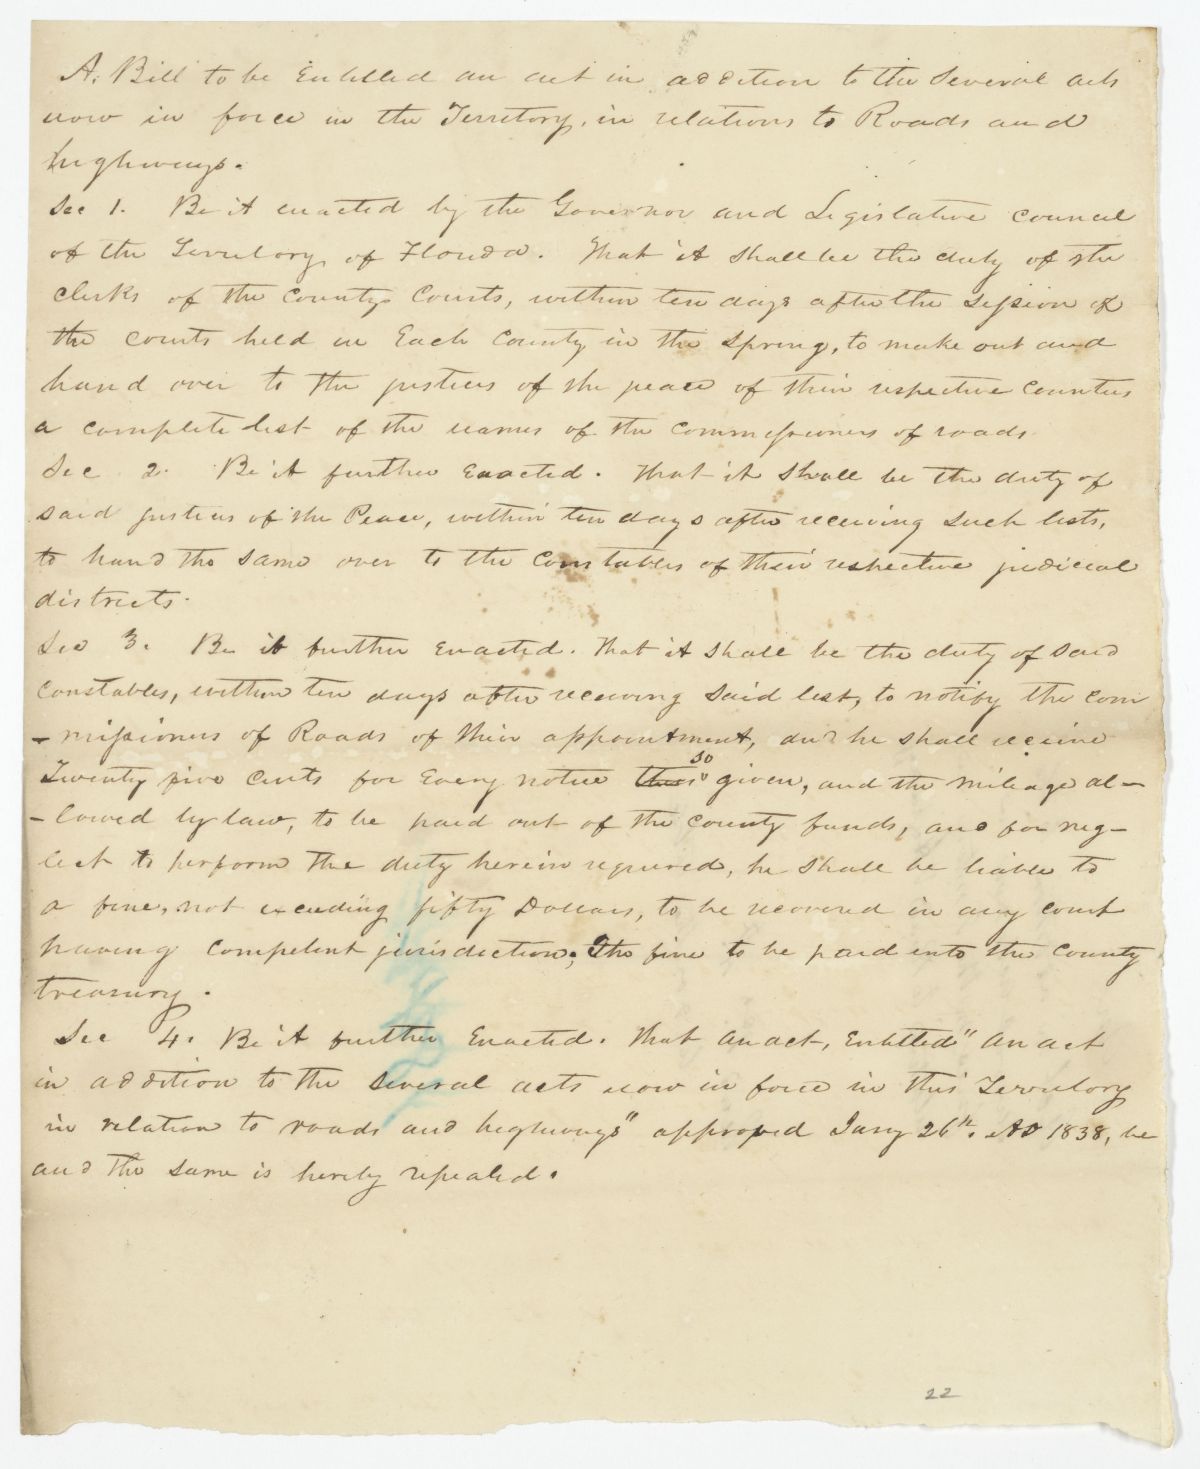 A. Bill to be Entitled an act in addition to the Several acts
now in force in the Territory, in relations to Roads and
highways.
Sec 1. Be it enacted by the Governor and Legislative council
of the Territory of Florida. That it shall be the duty of the
clerks of the County Courts, within ten days after the Session of
the courts held in Each County in the Spring, to make out and
hand over to the justices of the peace of their respective Counties
a complete list of the names of the Commissioners of roads.
Sec 2. Be it further Enacted. That it Shall be the duty of
said justices of the Peace, within ten days after receiving such lists,
to hand the same over to the Constables of their respective judicial
districts.
Sec 3. Be it further Enacted. That it shall be the duty of said
Constables, within ten days after receiving said list, to notify the com
-missioners of Roads of their appointment, and he shall receive
so
Twenty five cents for Every notice given, and the mileage al-
-lowed by law, to be paid out of the County funds, and for neg-
lect to perform the duty herein required, he shall be liable to
a fine, not exceeding fifty Dollars, to be recovered in any court
having competent jurisdiction; The fine to be paid into the County
treasury.
Sec 4. Be it further Enacted. That an act, Entitled "An act
in addition to the Several acts now in force in this Territory
in relation to roads and highways" approved Jany 26th. AD 1838, be
and the same is hereby repealed.
22